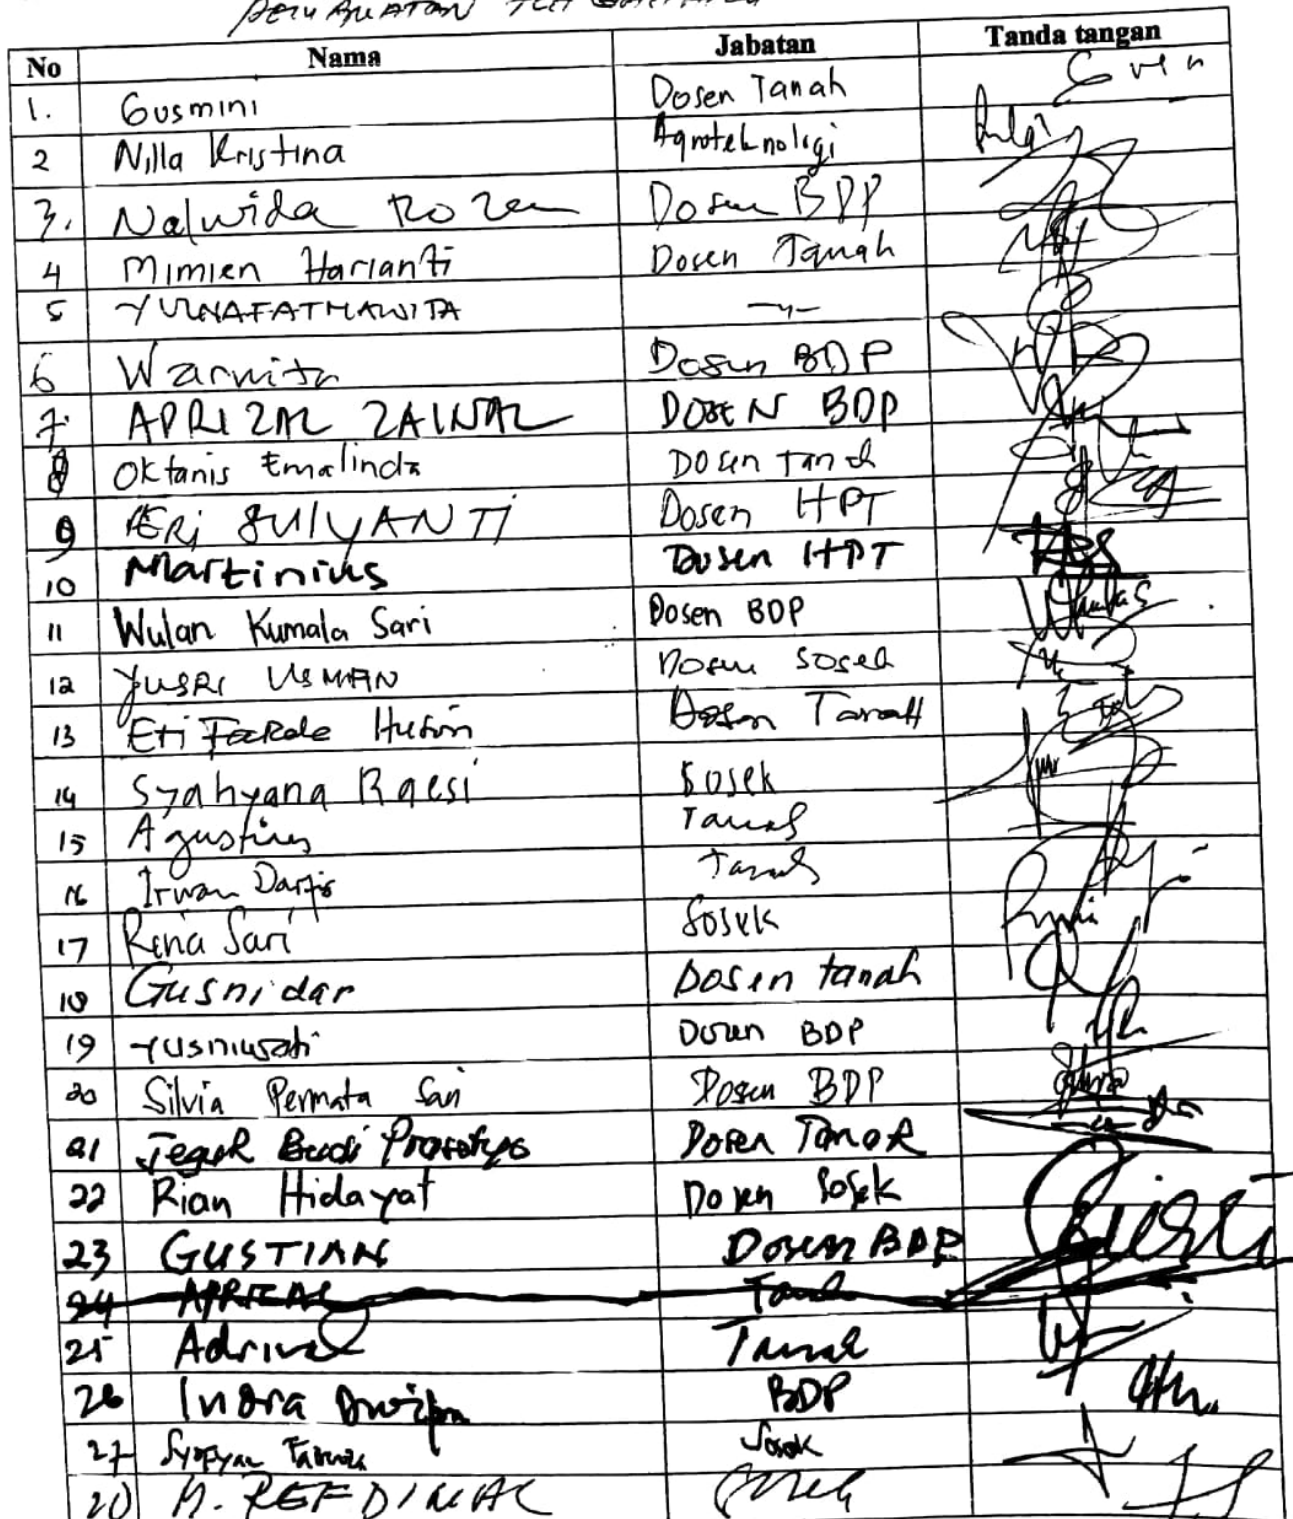 No Nama Jabatan Tanda tangan
1. Gusmini Dosen Tanah
2 Nilla Kristina Agroteknologi
3. Nalwida Rozen Dosen BDP
4 Mimien Harianti Dosen Tanah
5 YULNAFATMAWITA -"-
6 Warnita Dosen BDP
7. APRIZAL ZAINAL DOSEN BDP
8 Oktanis Emalinda Dosen tanah
9 RERI SULYANTI Dosen HPT
10 Martinius Dosen HPT
11 Wulan Kumala Sari Dosen BDP
12 YUSRI USMAN Dosen sosek
13 Eti Farda Husin Dosen Tanah
14 Syahyana Raesi Sosek
15 Agustian Tanah
16 Irwan Darfis Tanah
17 Rina Sari Sosek
18 Gusnidar Dosen tanah
19 Yusniwati Dosen BDP
20 Silvia Permata Sari Dosen BDP
21 Teguh Budi Prasetyo Dosen Tanah
22 Rian Hidayat Dosen Sosek
23 GUSTIAN Dosen BDP
24 APRIZAL Tanah
25 Adrinal Tanah
26 Indra Dwipa BDP
27 Syofyan Sosek
28 M. REFDINAL